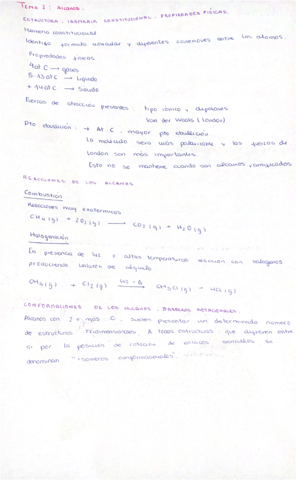 TEMA 2: ALCANOS.
ESTRUCTURA. ISOMERÍA CONSTITUCIONAL. PROPIEDADES FÍSICAS.
Isomería constitucional
Idéntica fórmula molecular y diferentes conexiones entre los átomos.
Propiedades físicas
4 at C → gases
5-15 at C → Líquido
+ at C → Sólido
Fuerzas de atracción presentes: tipo iónico, dispersiones
Van der Waals (London)
Pto ebullición: → At C, mayor pto ebullición
La molécula será más polarizable y las fuerzas de
London son más importantes.
Esto no se mantiene cuando son alcanos ramificados
REACCIONES DE LOS ALCANOS
Combustión
Reacciones muy exotérmicas
CH4 (g) + 2O2 (g) → CO2 (g) + H2O (g)
Halogenación
En presencia de luz o altas temperaturas reaccionan con halógenos
produciendo haluros de alquilo
CH4 (g) + Cl2 (g) → CH3Cl (g) + HCl (g)
CONFORMACIONES DE LOS ALCANOS. BARRERAS ROTACIONALES.
Alcanos con 2 o más C, suelen presentar un determinado número
de estructuras tridimensionales. A estas estructuras que difieren entre
sí por la posición de rotación de enlaces sencillos se
denominan "isómeros conformacionales".